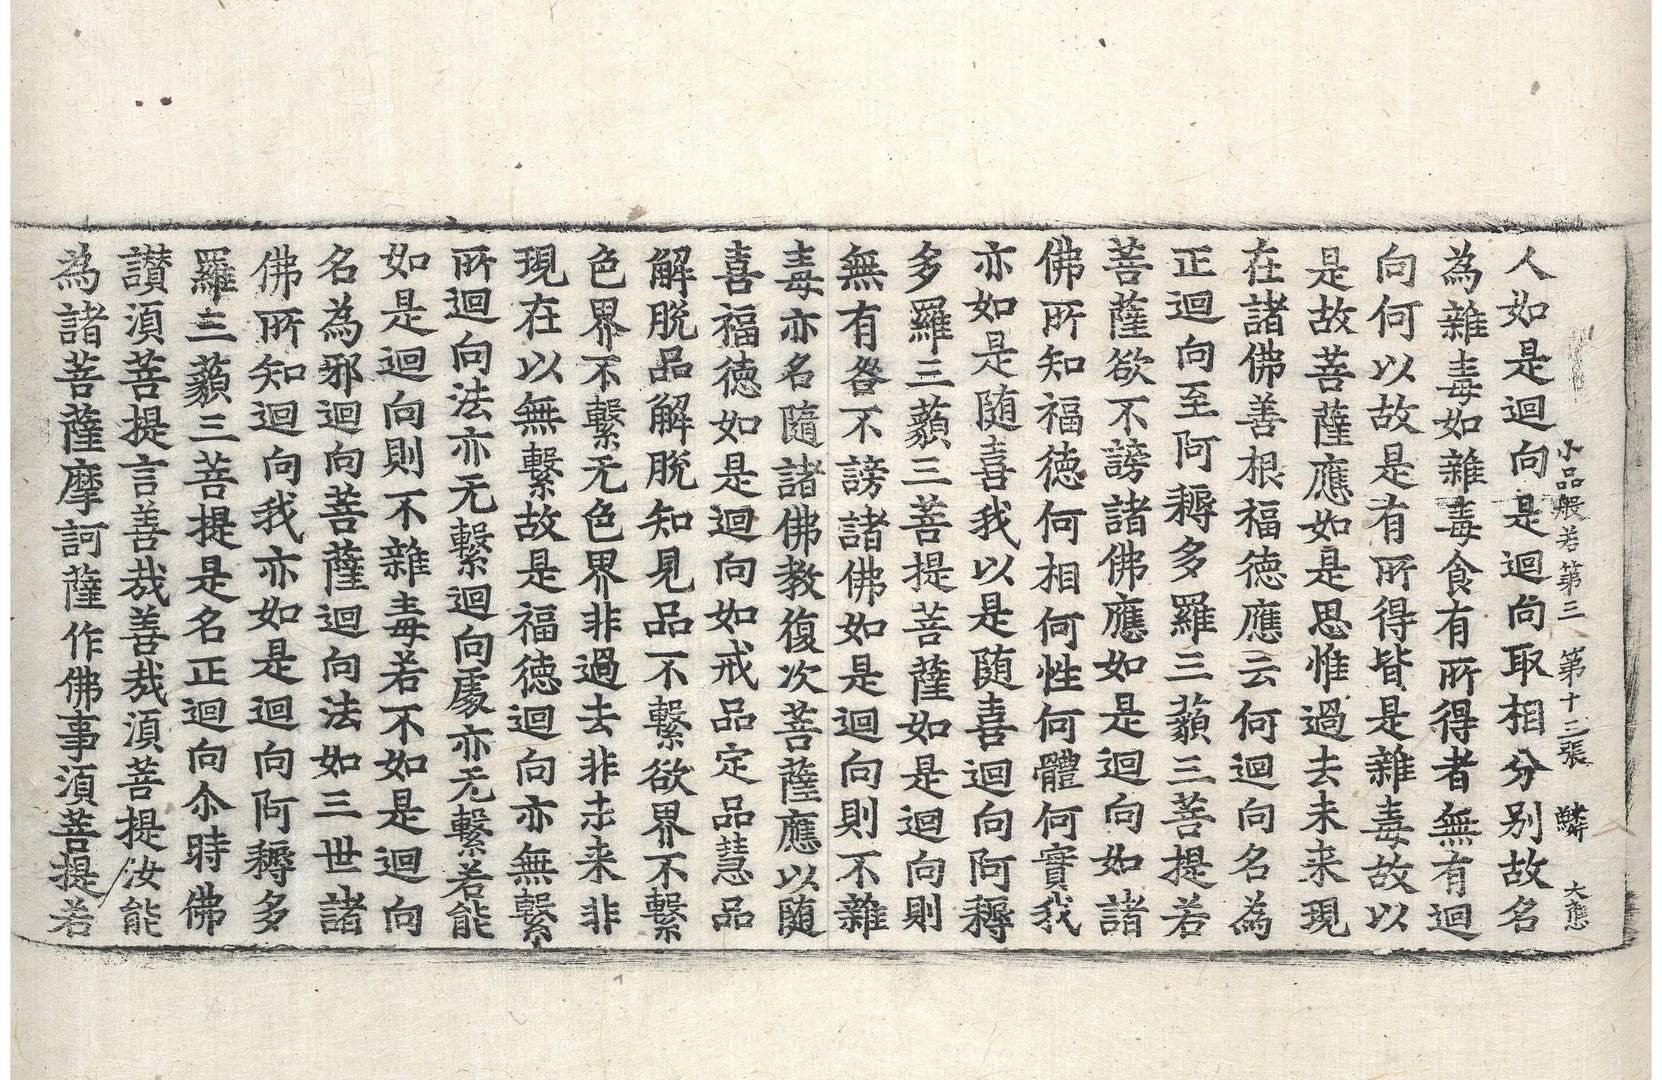 小品般若第三 第十三張 鱗 大應
人如是迴向是迴向取相分別故名
為雜毒如雜毒食有所得者無有迴
向何以故是有所得皆是雜毒故以
是故菩薩應如是思惟過去未来現
在諸佛善根福德應云何迴向名為
正迴向至阿耨多羅三藐三菩提若
菩薩欲不謗諸佛應如是迴向如諸
佛所知福徳何相何性何體何實我
亦如是随喜我以是随喜迴向阿耨
多羅三藐三菩提菩薩如是迴向則
無有咎不謗諸佛如是迴向則不雜
毒亦名隨諸佛教復次菩薩應以随
喜福徳如是迴向如戒品定品慧品
解脱品解脱知見品不繫欲界不繫
色界不繫无色界非過去非未来非
現在以無繫故是福徳迴向亦無繫
所迴向法亦无繫迴向處亦无繫若能
如是迴向則不雜毒若不如是迴向
名為邪迴向菩薩迴向法如三世諸
佛所知迴向我亦如是迴向阿耨多
羅三藐三菩提是名正迴向尒時佛
讃湏菩提言善哉善哉湏菩提汝能
為諸菩薩摩訶薩作佛事湏菩提若